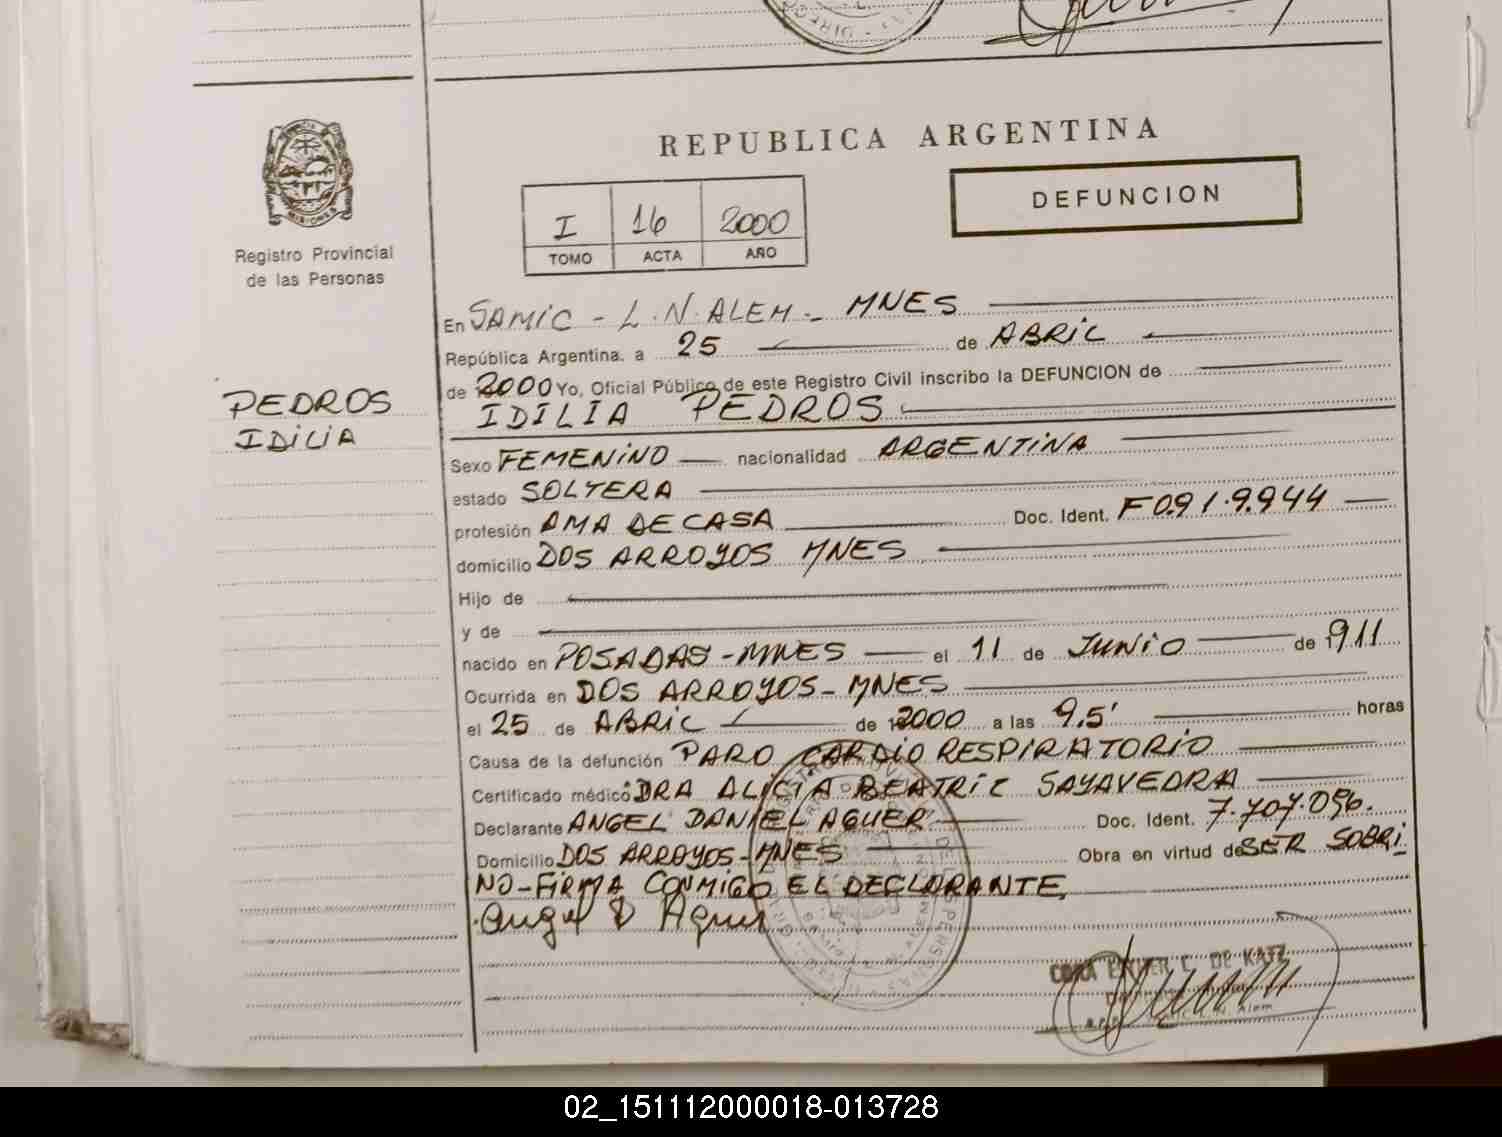 REPUBLICA ARGENTINA
DEFUNCION
I 16 2000
TOMO ACTA AÑO
MISIONES
Registro Provincial
de las Personas
PEDROS
IDILIA
En SAMIC - L.N. ALEM - MNES
República Argentina. a 25 de ABRIL
de 2000 Yo, Oficial Público de este Registro Civil inscribo la DEFUNCION de
IDILIA PEDROS
Sexo FEMENINO nacionalidad ARGENTINA
estado SOLTERA
profesión AMA DE CASA Doc. Ident. F 091.9.944
domicilio DOS ARROYOS MNES
Hijo de
y de
nacido en POSADAS - MNES el 11 de JUNIO de 1911
Ocurrida en DOS ARROYOS - MNES
el 25 de ABRIL de 2000 a las 9,5' horas
Causa de la defunción PARO CARDIO RESPIRATORIO
Certificado médico DRA ALICIA BEATRIZ SAYAVEDRA
Declarante ANGEL DANIEL AGUER Doc. Ident. 7.707.056.
Domicilio DOS ARROYOS - MNES Obra en virtud de SER SOBRI
NO - FIRMA CONMIGO EL DECLARANTE
Angel D Aguer
C. DE KATZ
02_151112000018-013728